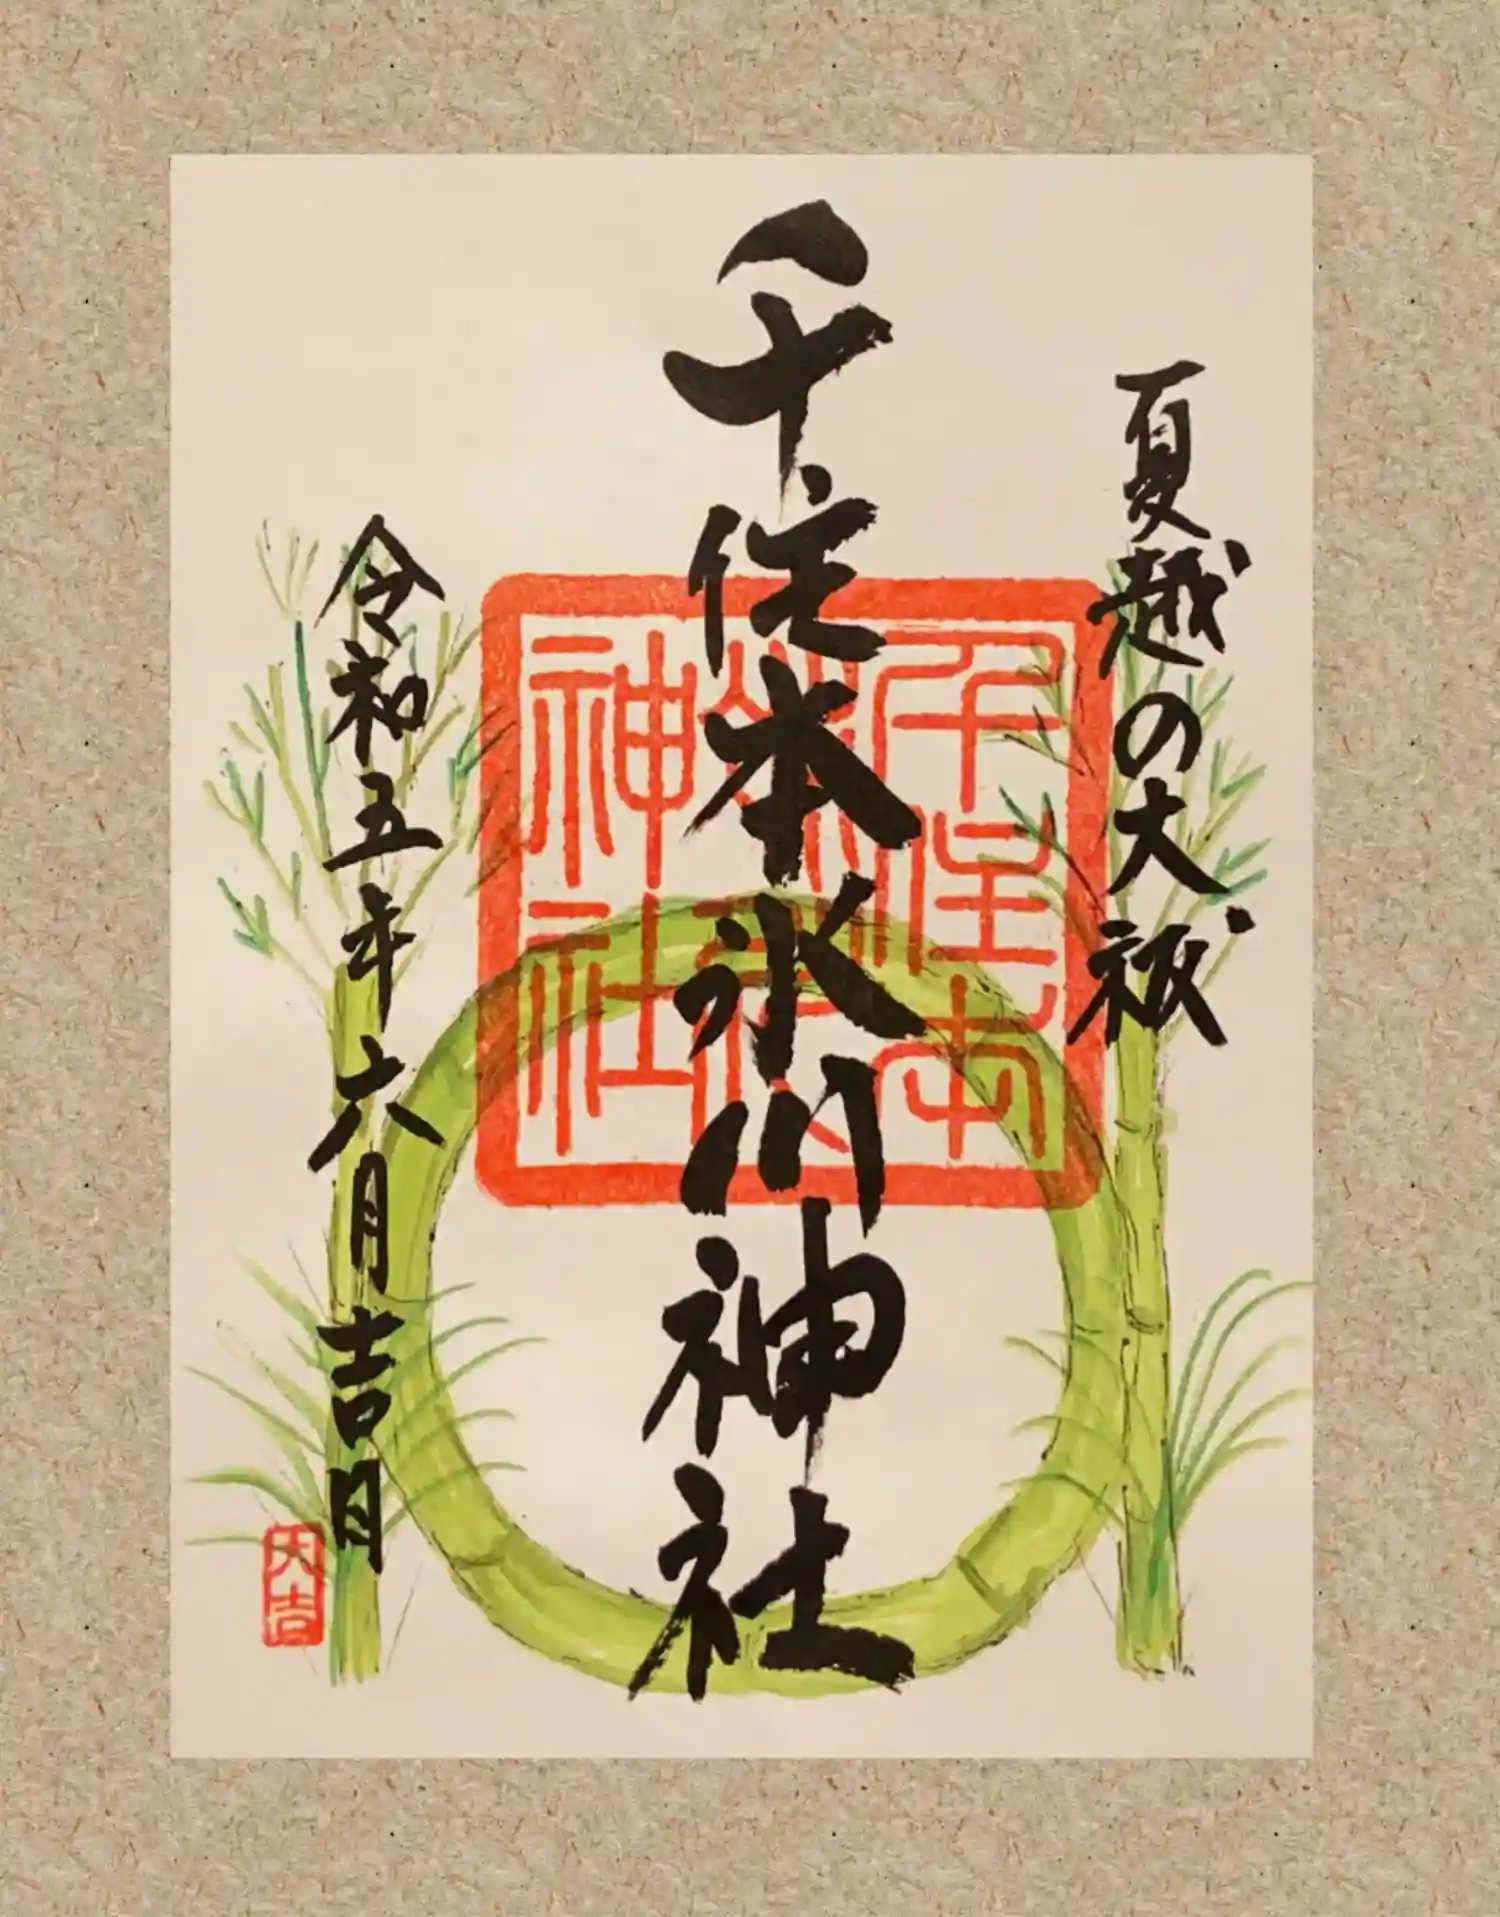 夏越の大祓
千住本氷川神社
令和五年六月吉日
千住本
氷川
神社